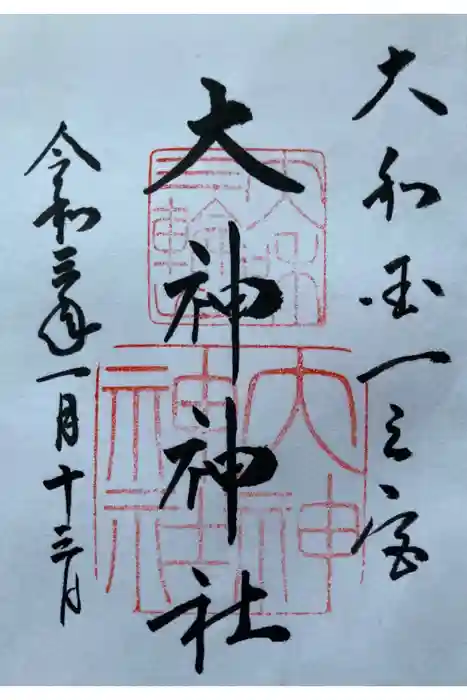 大和国一之宮
大神神社
令和三年一月十三日
大神
神社